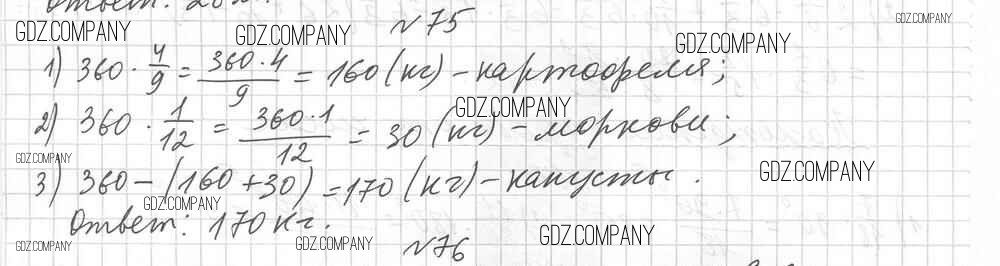 Ответ: 20
№75
GDZ.COMPANY
GDZ.COMPANY
GDZ.COMPANY
GDZ.COMPANY
1) 360 · 4/9 = 360·4/9 = 160 (кг) – картофеля;
GDZ.COMPANY
2) 360 · 1/12 = 360·1/12 = 30 (кг) – моркови;
GDZ.COMPANY
GDZ.COMPANY
3) 360 – (160 + 30) = 170 (кг) – капусты.
GDZ.COMPANY
Ответ: 170 кг.
GDZ.COMPANY
GDZ.COMPANY
GDZ.COMPANY
№76